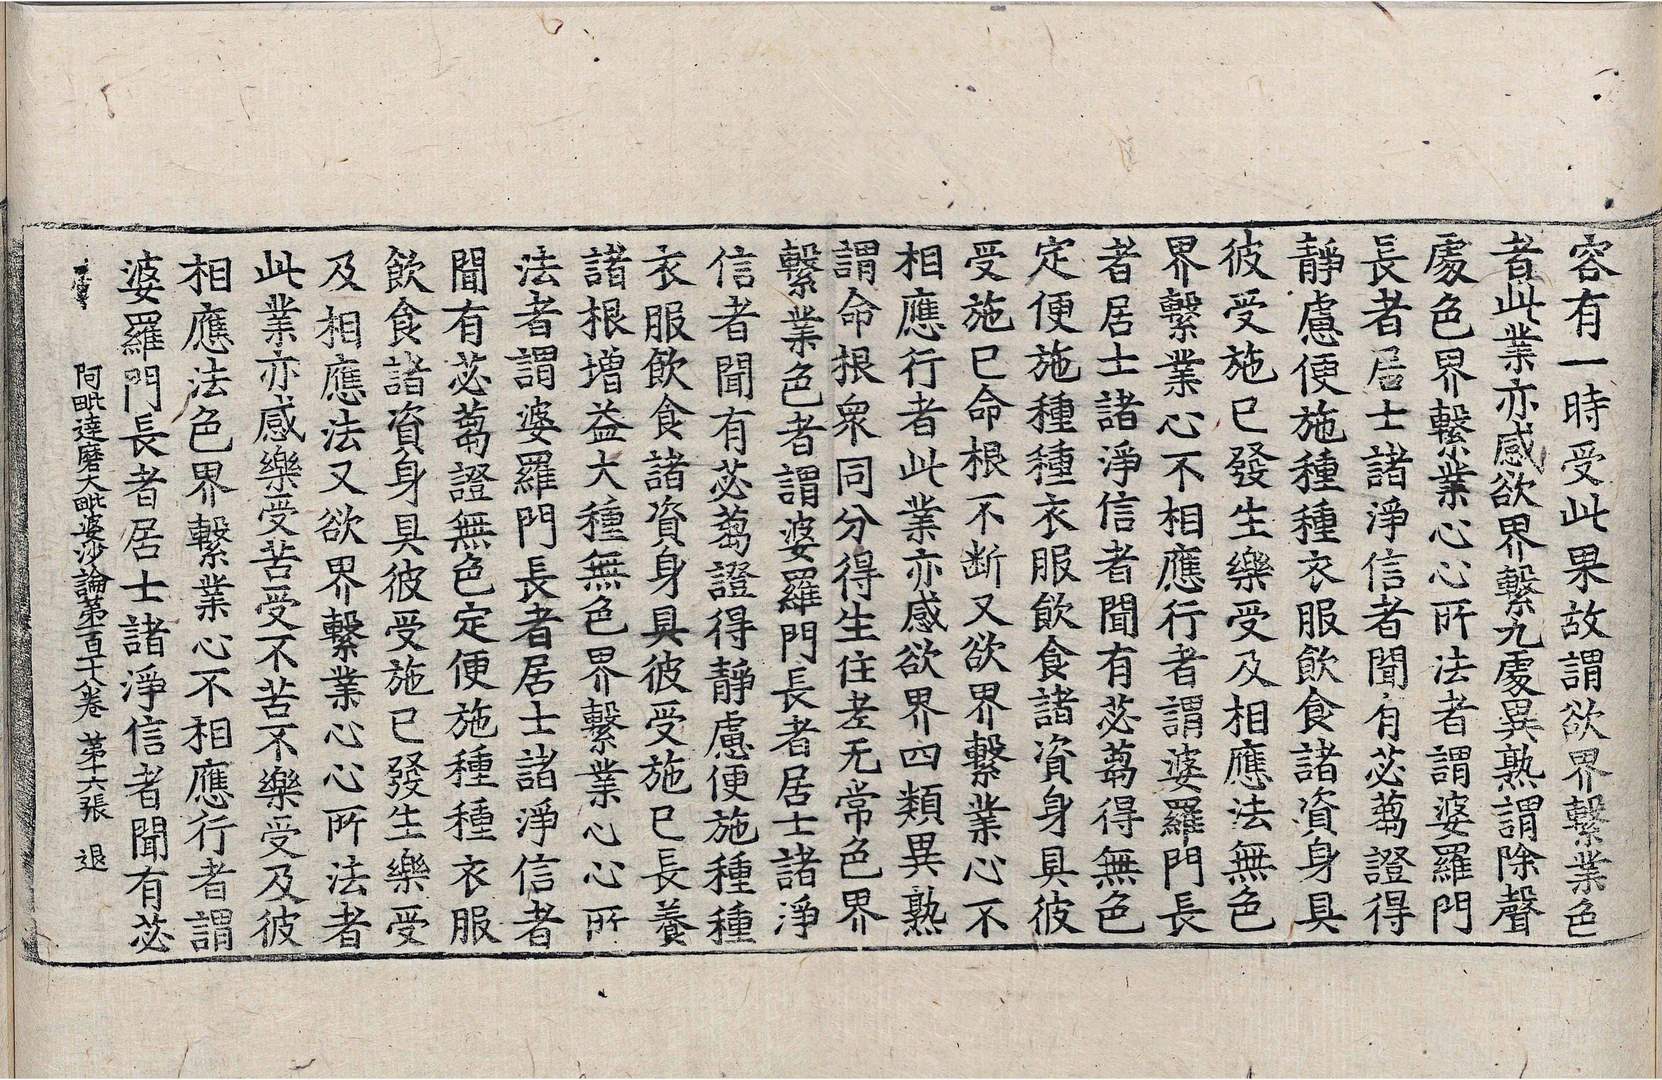 容有一時受此果故謂欲界繫業色
者此業亦感欲界繫九處異熟謂除聲
處色界繫業心心所法者謂婆羅門
長者居士諸淨信者聞有苾蒭證得
靜慮便施種種衣服飲食諸資身具
彼受施已發生樂受及相應法無色
界繫業心不相應行者謂婆羅門長
者居士諸淨信者聞有苾蒭得無色
定便施種種衣服飲食諸資身具彼
受施已命根不断又欲界繫業心不
相應行者此業亦感欲界四類異熟
謂命根衆同分得生住老无常色界
繫業色者謂婆羅門長者居士諸淨
信者聞有苾蒭證得靜慮便施種種
衣服飲食諸資身具彼受施已長養
諸根增益大種無色界繫業心心所
法者謂婆羅門長者居士諸淨信者
聞有苾蒭證無色定便施種種衣服
飲食諸資身具彼受施已發生樂受
及相應法又欲界繫業心心所法者
此業亦感樂受苦受不苦不樂受及彼
相應法色界繫業心不相應行者謂
婆羅門長者居士諸淨信者聞有苾
阿毗達磨大毗婆沙論第百十八卷 第十六張 退